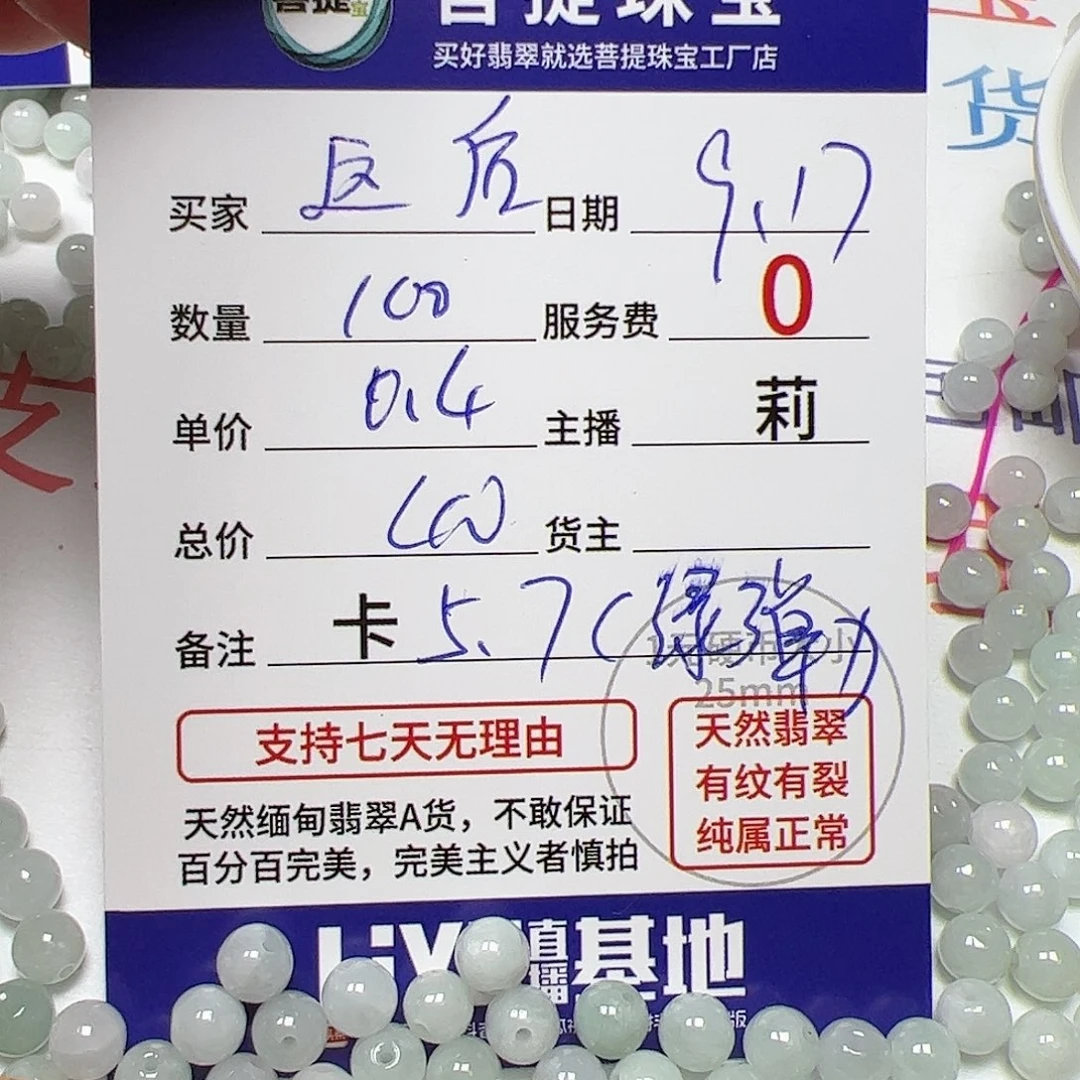 菩提
菩提珠宝
买好翡翠就选菩提珠宝工厂店
买家 日期 9.17
数量 100 服务费 0
单价 0.4 主播 莉
总价 货主
备注 卡 5.7(绿弹)
1元硬币大小
25mm
支持七天无理由
天然缅甸翡翠A货，不敢保证
百分百完美，完美主义者慎拍
天然翡翠
有纹有裂
纯属正常
直播基地
货
支